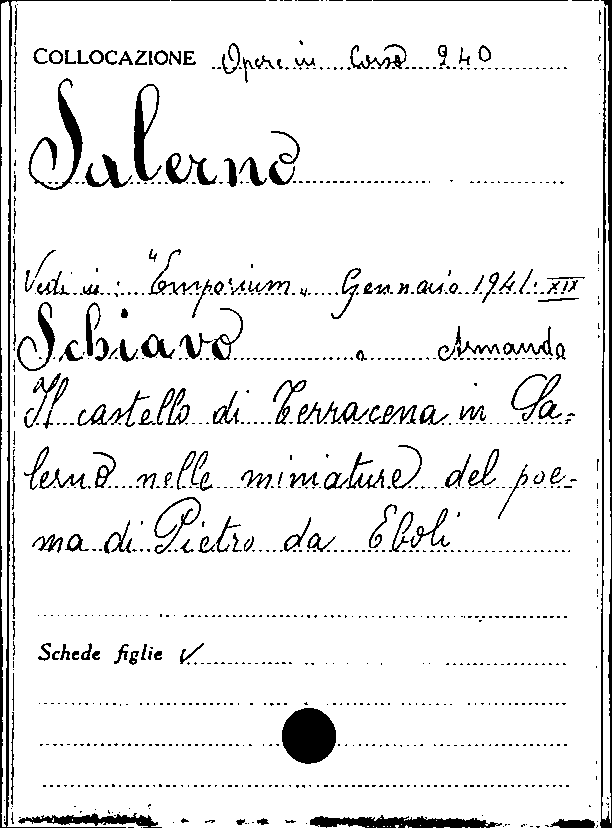 COLLOCAZIONE Opere in Corso 240
Salerno
Vedi in: "Emporium„ Gennaio 1941. XIX
Schiavo Armando
Il castello di Terracena in Sa-
lerno nelle miniature del poe-
ma di Pietro da Eboli
Schede figlie ✓